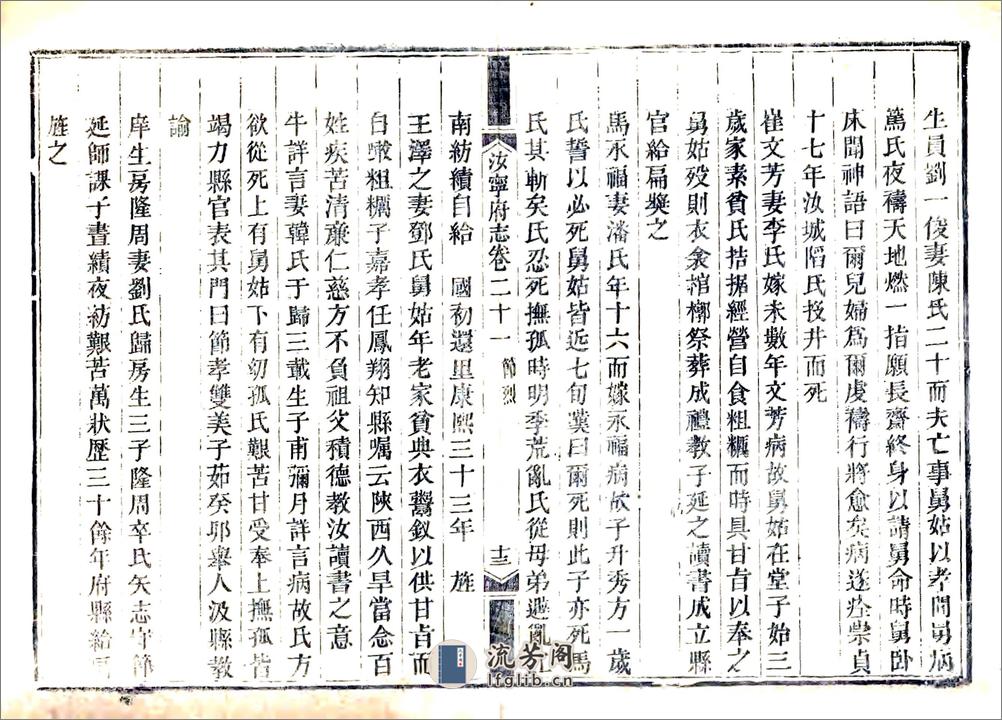 生員劉一俊妻陳氏二十而夫亡事舅姑以孝聞舅病
篤氏夜禱天地燃一指願長齋終身以請舅命時舅卧
床聞神語曰爾兒婦爲爾虔禱行將愈矣病遂痊崇貞
十七年汝城陷氏投井而死
崔文芳妻李氏嫁未數年文芳病故舅姑在堂子始三
歲家素貧氏拮据經營自食粗糲而時具甘旨以奉之
舅姑歿則衣衾棺槨祭葬成禮教子延之讀書成立縣
官給扁獎之
馬永福妻潘氏年十六而嫁永福病故子升秀方一歲
氏誓以必死舅姑皆近七旬葉曰爾死則此子亦死馬
氏其斬矣氏忍死撫孤時明季荒亂氏從母弟避亂
汝寧府志卷二十一 節烈 十三
南紡績自給 國初還里康熙三十三年 旌
王澤之妻鄧氏舅姑年老家貧典衣鬻釵以供甘旨而
自噉粗糲子嘉孝任鳳翔知縣囑云陝西久旱當念百
姓疾苦清廉仁慈方不負祖父積德教汝讀書之意
牛詳言妻韓氏于歸三載生子甫彌月詳言病故氏方
欲從死上有舅姑下有幼孤氏艱苦甘受奉上撫孤皆
竭力縣官表其門曰節孝雙美子茹癸卯舉人汲縣教
諭
庠生房隆周妻劉氏歸房生三子隆周卒氏矢志守節
延師課子晝績夜紡艱苦萬狀歷三十餘年府縣給扁
旌之
流芳阁
lfglib.cn